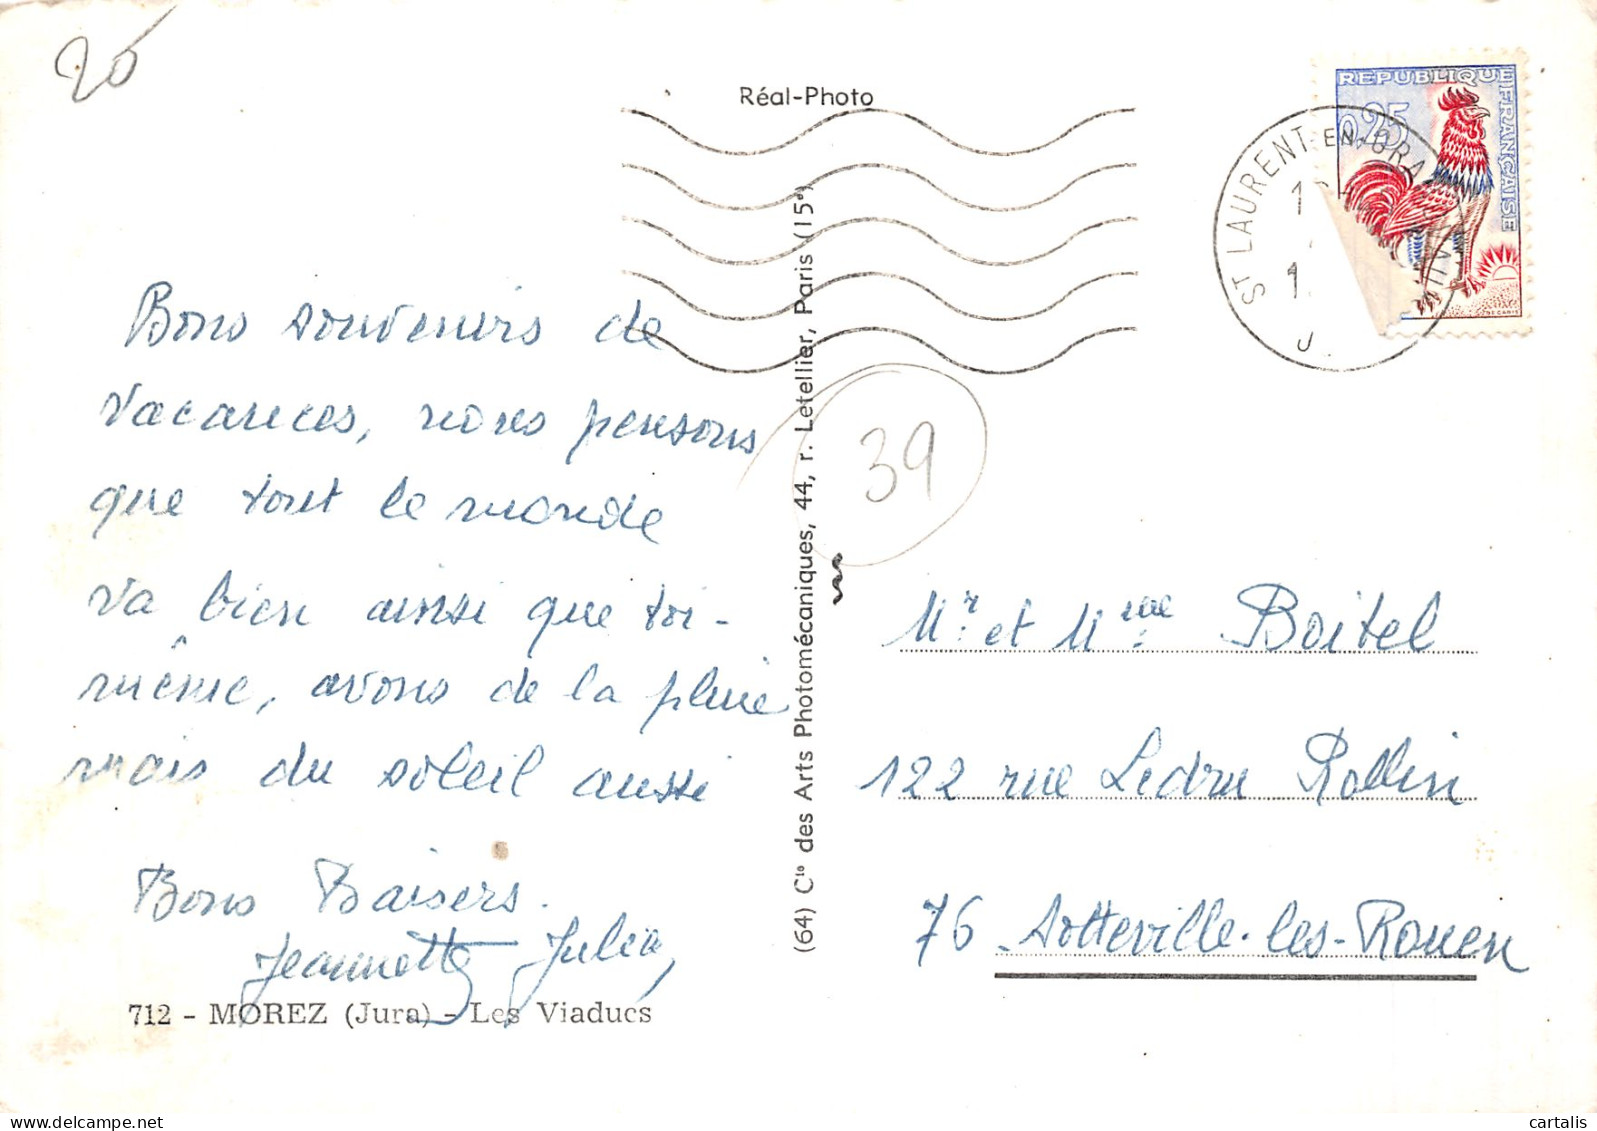 20
Réal-Photo
REPUBLIQUE
FRANÇAISE
0,25
ST LAURENT-EN-GRANDVAUX
Bons souvenirs de
vacances, nous pensons
que tout le monde
va bien ainsi que toi-
même, avons de la pluie
mais du soleil aussi
Bons Baisers.
Jeannette Julia
712 - MOREZ (Jura) - Les Viaducs
(64) Cie des Arts Photomécaniques, 44, r. Letellier, Paris (15e)
39
Mr. et Mme Boitel
122 rue Ledru Rollin
76 - Sotteville-les-Rouen
cartalis